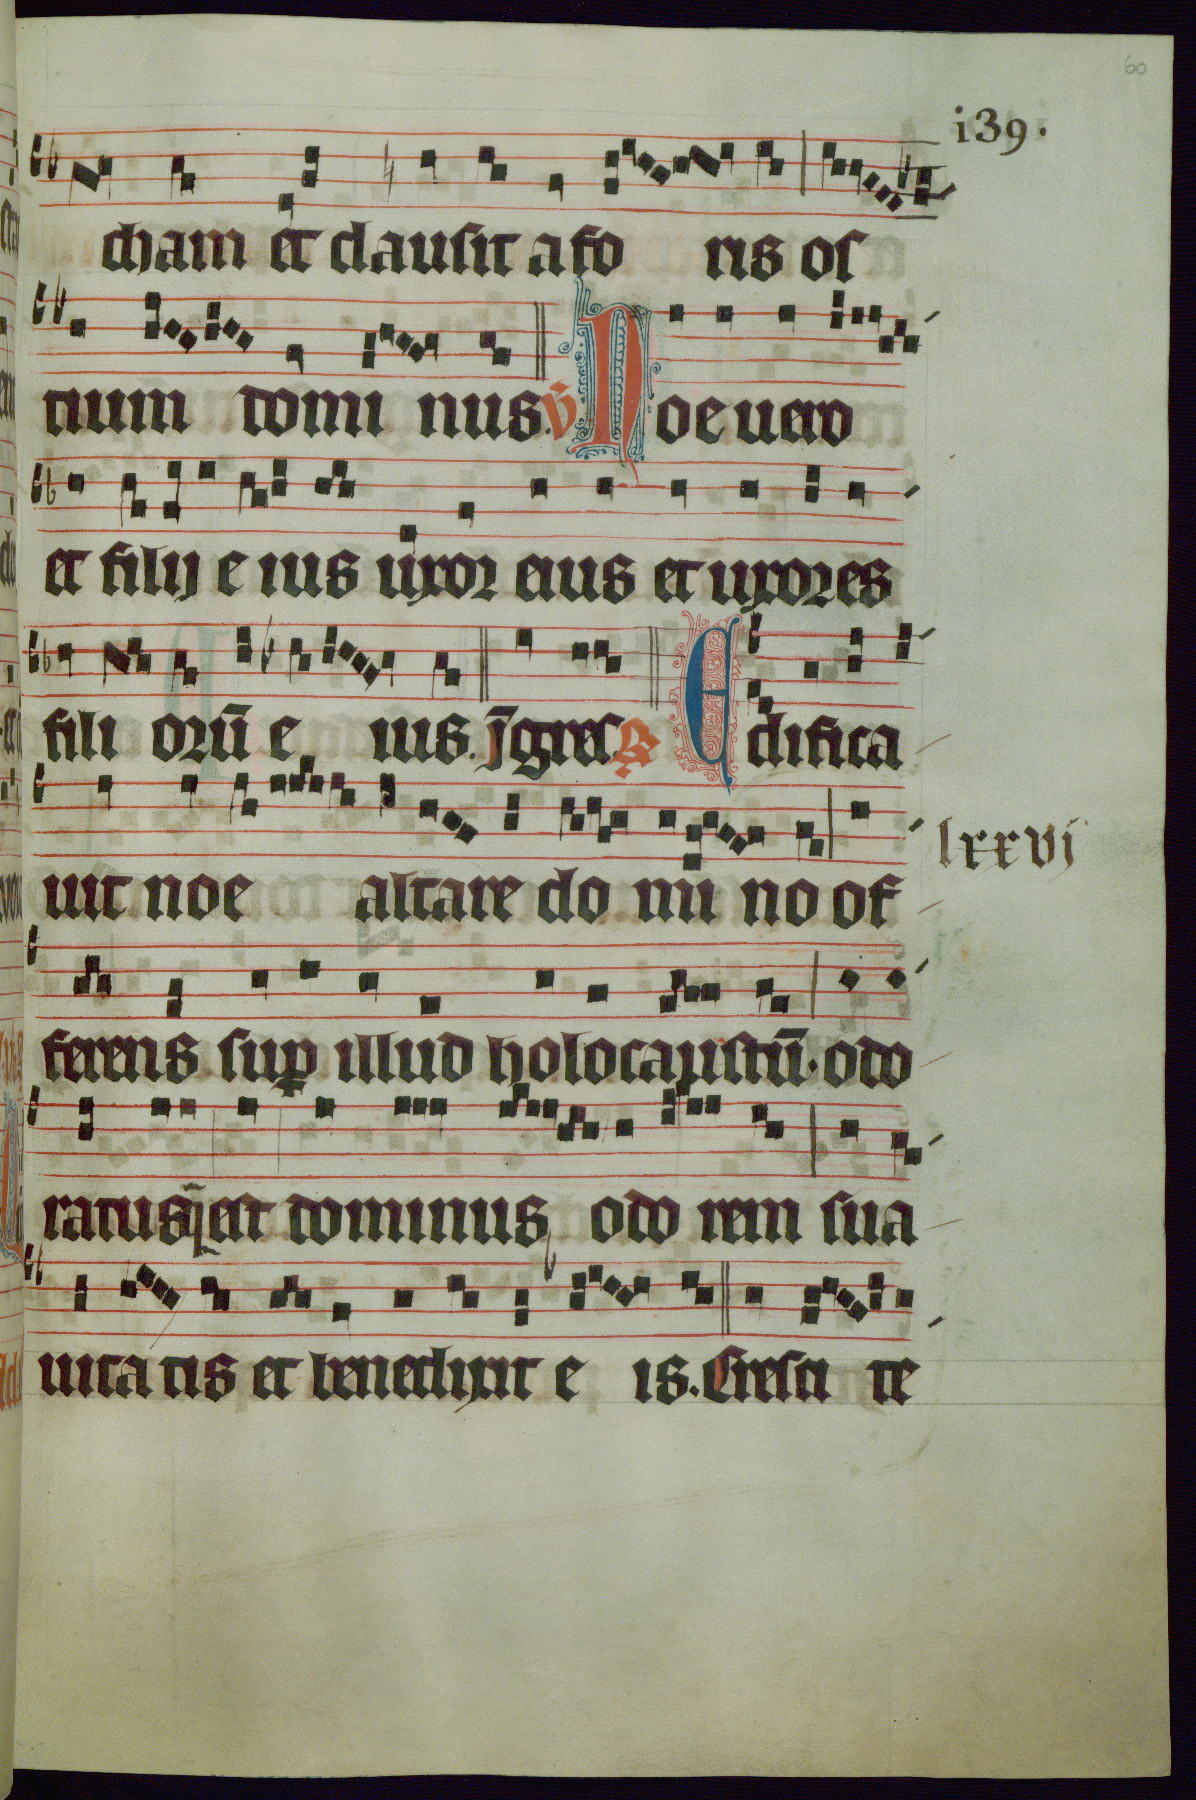 60
i39.
cham et clausit a fo ris os
tium domi nus. V Noe uero
et filij e ius uxor eius et uxores
fili orū e ius. Jgres. R Edifica
uit noe altare do mi no of
lxxvj
ferens sup illud holocaustū. odo
ratusq̄ est dominus odo rem sua
uita tis et benedixit e is. Cresci te